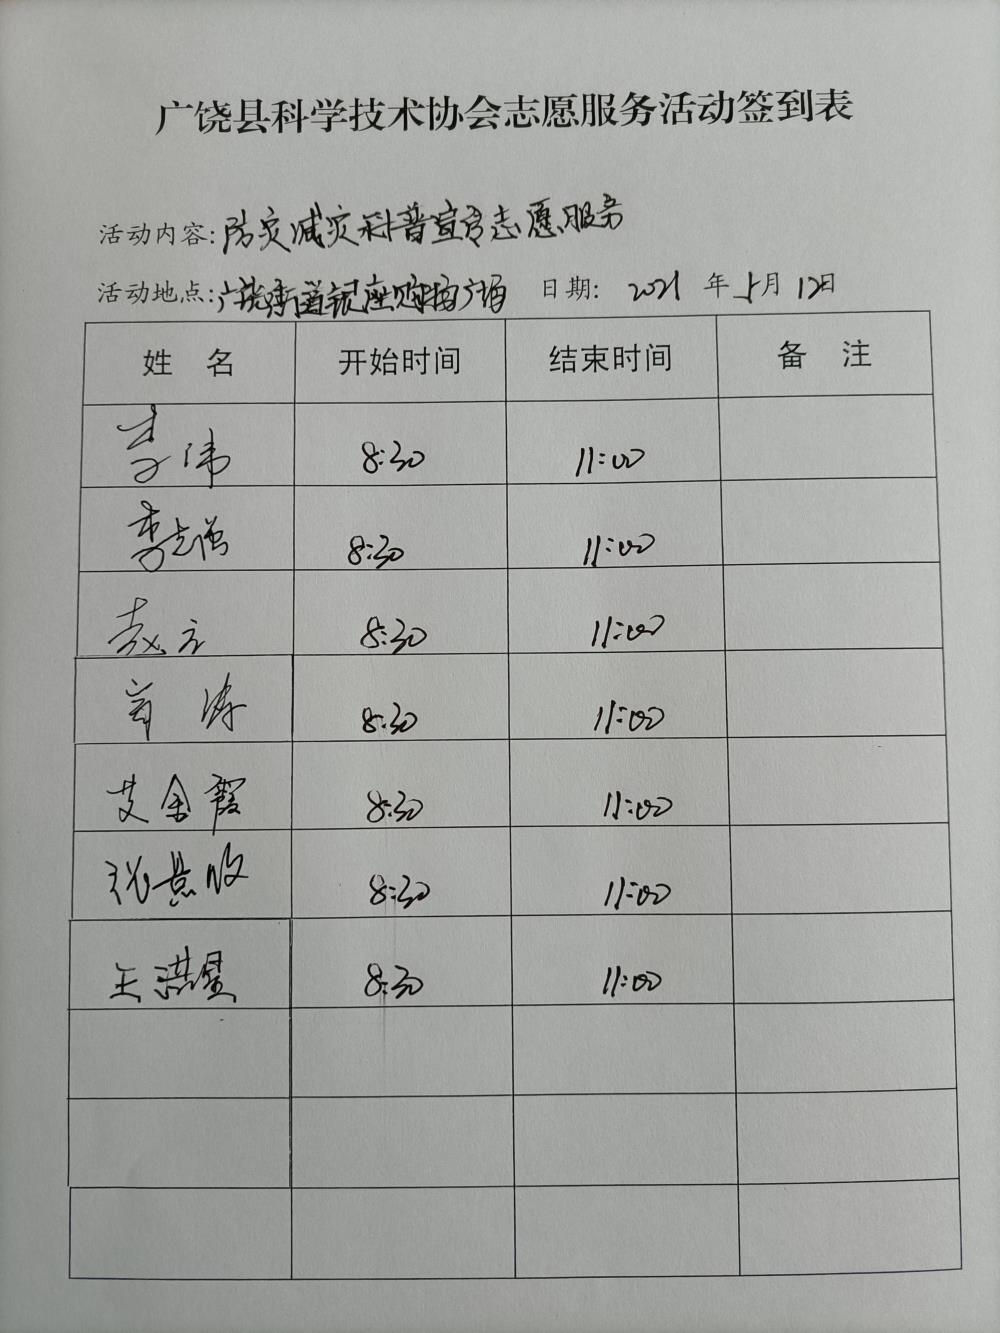 广饶县科学技术协会志愿服务活动签到表
活动内容:防灾减灾科普宣传志愿服务
活动地点:广饶街道银座购物广场 日期: 2021 年 5月 12日
姓 名 开始时间 结束时间 备 注
李伟 8:30 11:00
李志强 8:30 11:00
8:30 11:00
涛 8:30 11:00
艾金霞 8:30 11:00
张景收 8:30 11:00
王洪星 8:30 11:00